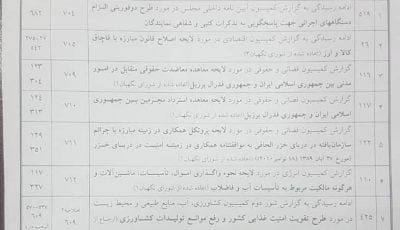 ادامه رسیدگی به گزارش کمیسیون آیین نامه داخلی مجلس در مورد طرح دوفوریتی الزام
۱ ۵۱۹ دستگاههای اجرائی جهت پاسخگویی به تذکرات کتبی و شفاهی نمایندگان ۷۰۴ ۶۸۲
ادامه رسیدگی به گزارش کمیسیون اقتصادی در مورد لایحه اصلاح قانون مبارزه با قاچاق
۲ ۲۶ کالا و ارز (اعاده شده از شورای نگهبان) ۷۰۵ ۵۴۲
گزارش کمیسیون قضائی و حقوقی در مورد لایحه معاضدت حقوقی متقابل در امور
۳ ۱۱۶ مدنی بین جمهوری اسلامی ایران و جمهوری فدرال برزیل (اعاده شده از شورای نگهبان) ۷۰۹ ۱۲۳ ۳۰۴
گزارش کمیسیون قضائی و حقوقی در مورد لایحه معاهده استرداد مجرمین بین جمهوری
۴ ۱۱۷ اسلامی ایران و جمهوری فدرال برزیل (اعاده شده از شورای نگهبان) ۷۱۰ ۱۲۴ ۳۱۳
گزارش کمیسیون قضائی و حقوقی در مورد لایحه پروتکل همکاری در زمینه مبارزه با جرائم
۵ ۱۲۲ سازمان‌یافته در دریای خزر الحاقی به موافقتنامه همکاری در زمینه امنیت در دریای خزر ۷۱۱ ۱۲۹ ۳۵۱
گزارش کمیسیون انرژی در مورد لایحه نحوه واگذاری اموال، تاسیسات، ماشین‌آلات و
۶ ۱۱۰ هرگونه مالکیت مربوط به تأسیسات آب و فاضلاب (اعاده شده از شورای نگهبان) ۷۱۲ ۱۱۷ ۳۲۷
ادامه رسیدگی به گزارش شور دوم کمیسیون کشاورزی، آب، منابع طبیعی و محیط زیست
۷ ۴۲۵ در مورد طرح تقویت امنیت غذایی کشور و رفع موانع تولیدات کشاورزی ۶۰۹